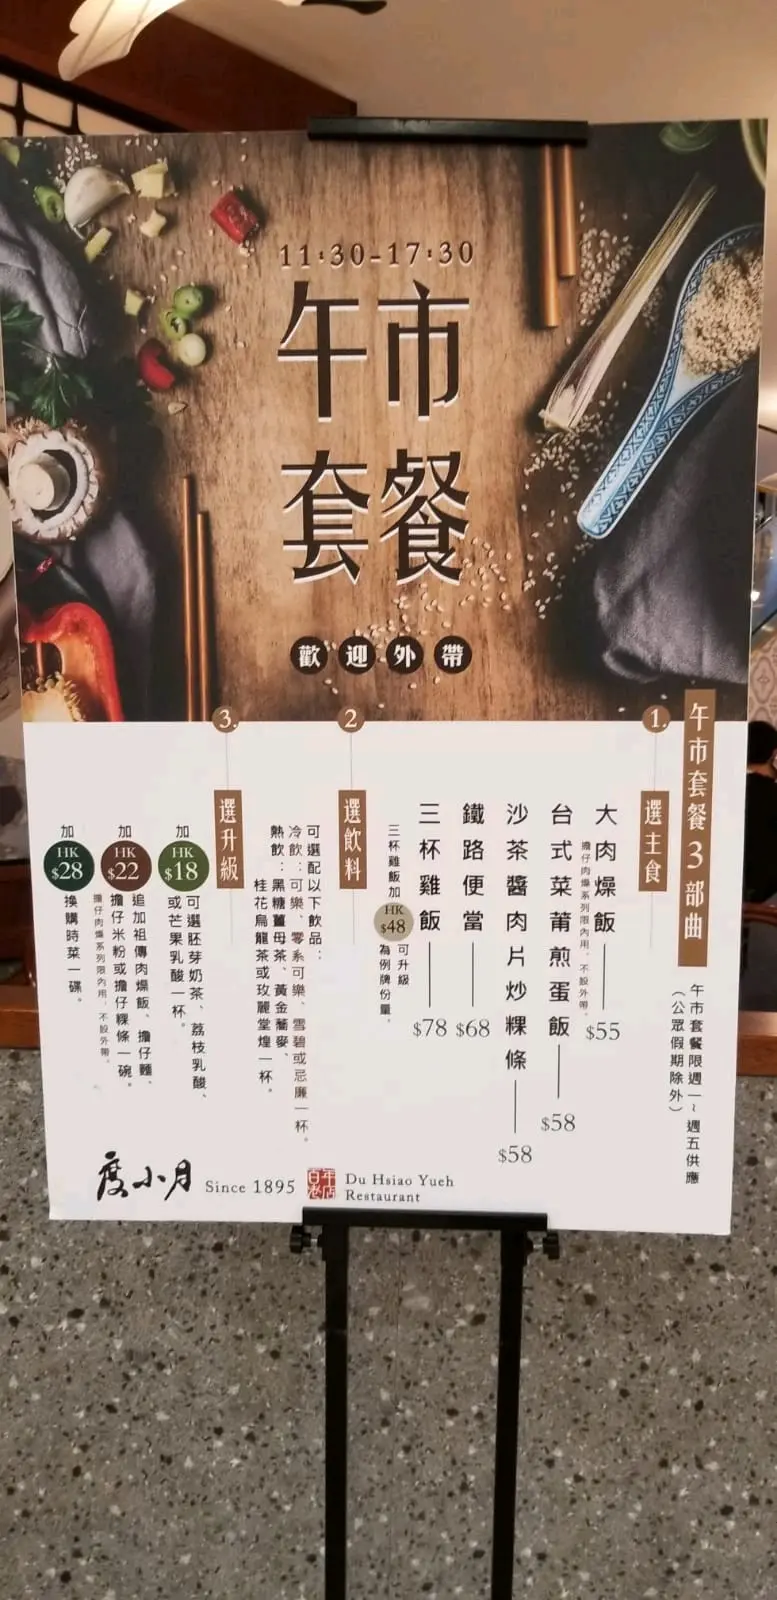 11:30-17:30
午市
套餐
歡迎外帶
午市套餐3部曲
午市套餐限週一~週五供應
（公眾假期除外）
1.
選主食
大肉燥飯——$55
擔仔肉燥系列限內用，不設外帶。
台式菜莆煎蛋飯——$58
沙茶醬肉片炒粿條——$58
鐵路便當——$68
三杯雞飯——$78
三杯雞飯加HK$48可升級
為例牌份量。
2
選飲料
可選配以下飲品：
冷飲：可樂、零系可樂、雪碧或忌廉一杯。
熱飲：黑糖薑母茶、黃金蕎麥、
桂花烏龍茶或玫麗堂煌一杯。
3.
選升級
加HK$18可選胚芽奶茶、荔枝乳酸、
或芒果乳酸一杯。
加HK$22追加祖傳肉燥飯、擔仔麵、
擔仔米粉或擔仔粿條一碗。
擔仔肉燥系列限內用，不設外帶。
加HK$28換購時菜一碟。
度小月 Since 1895 百年老店 Du Hsiao Yueh
Restaurant